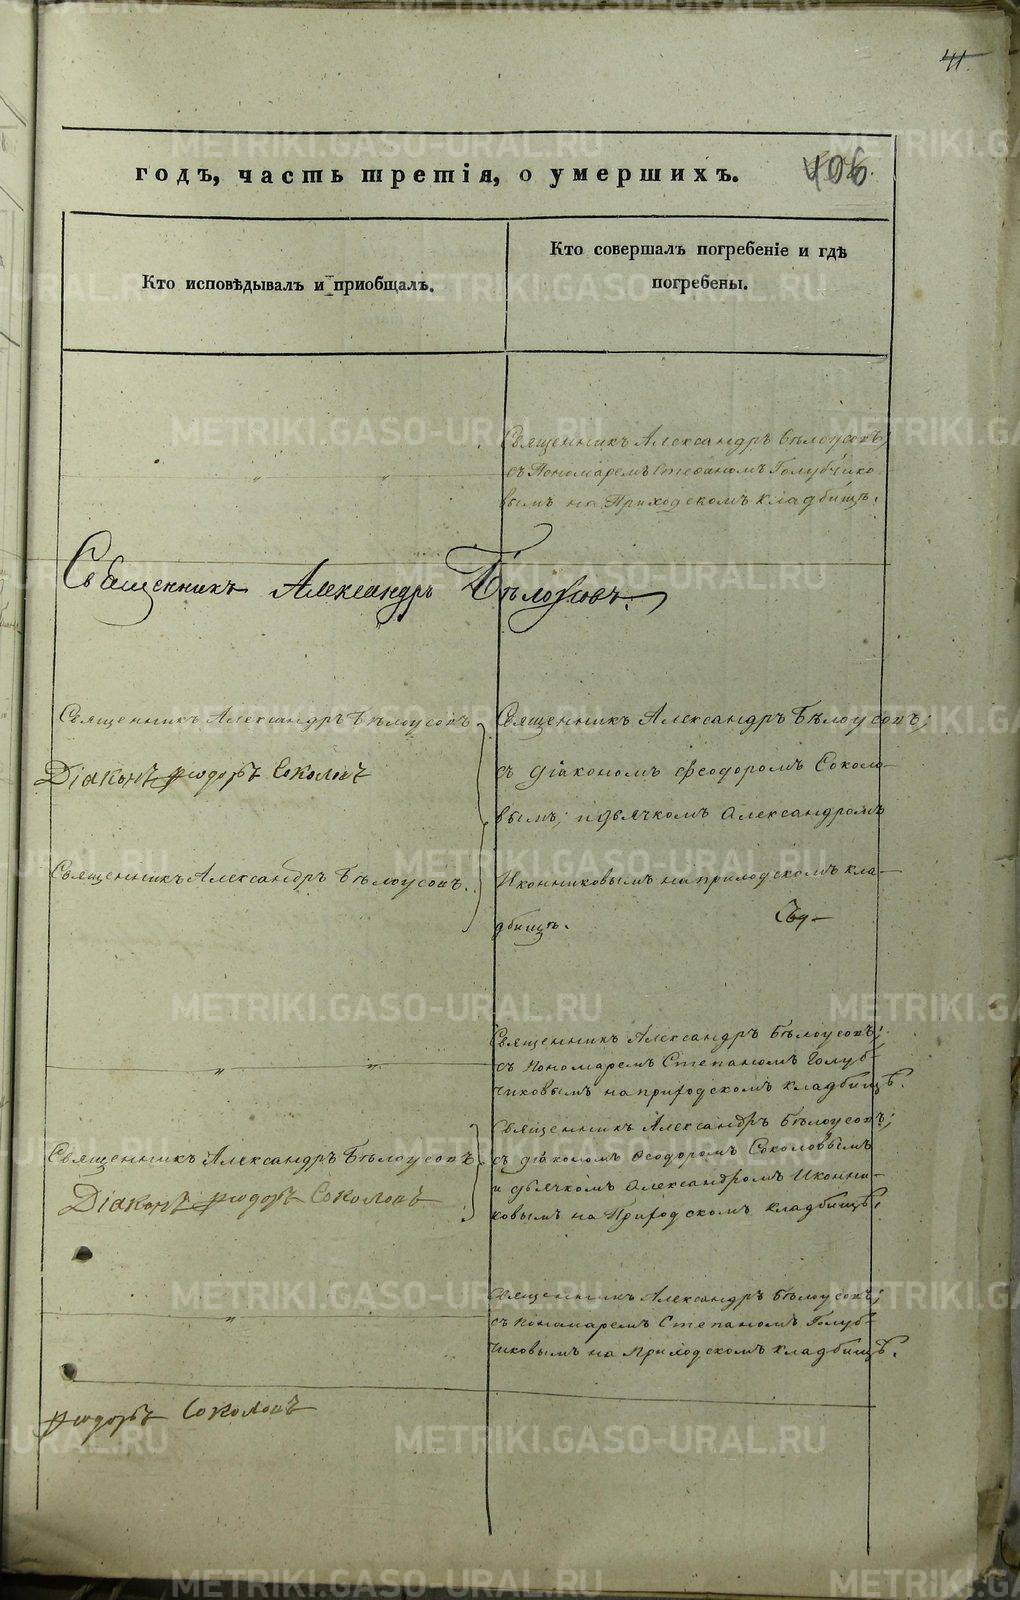 41
годъ, часть третія, о умершихъ.
106.
Кто исповѣдывалъ и пріобщалъ.
Кто совершалъ погребеніе и гдѣ
погребены.
Священникъ Александръ Бѣлоусовъ,
съ Пономаремъ Стефаномъ Голубчико-
вымъ на Приходскомъ кладбищѣ.
Священникъ Александръ Бѣлоусовъ.
Священникъ Александръ Бѣлоусовъ
Діаконъ Ѳеодоръ Соколовъ
Священникъ Александръ Бѣлоусовъ.
Священникъ Александръ Бѣлоусовъ;
съ діакономъ Ѳеодоромъ Соколо-
вымъ; и дьячкомъ Александромъ
Иконниковымъ на приходскомъ кла-
дбищѣ.
Священникъ Александръ Бѣлоусовъ;
съ пономаремъ Степаномъ Голуб-
чиковымъ на приходскомъ кладбищѣ.
Священникъ Александръ Бѣлоусовъ
Діаконъ Ѳеодоръ Соколовъ
Священникъ Александръ Бѣлоусовъ;
съ діакономъ Ѳеодоромъ Соколовымъ
и дьячкомъ Александромъ Иконни-
ковымъ на Приходскомъ кладбищѣ.
Священникъ Александръ Бѣлоусовъ;
съ пономаремъ Степаномъ Голуб-
чиковымъ на Приходскомъ кладбищѣ.
Ѳеодоръ Соколовъ
METRIKI.GASO-URAL.RU